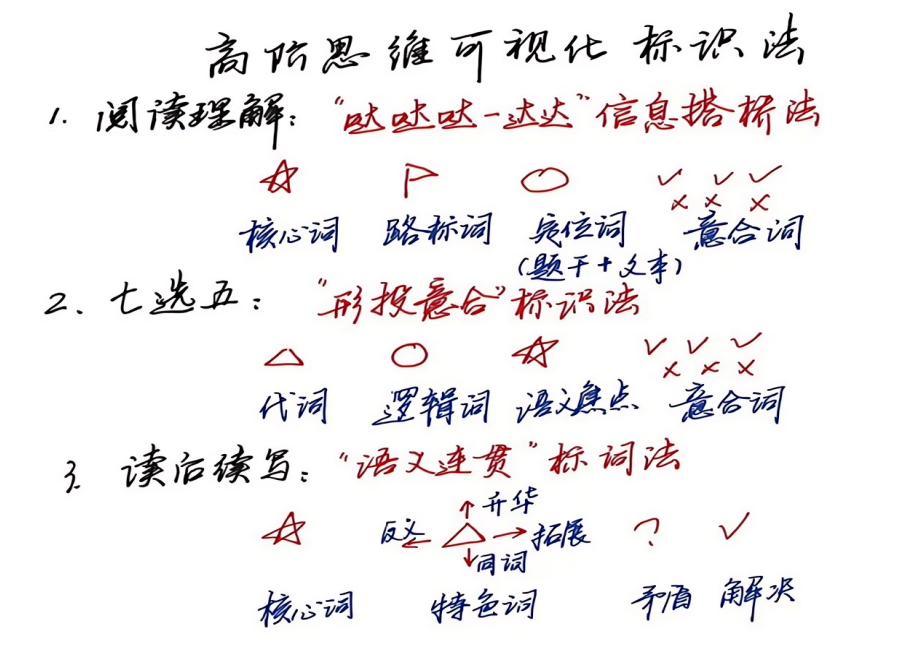 高阶思维可视化标识法
1. 阅读理解："哒哒哒-达达"信息搭桥法
核心词 路标词 定位词 意合词
(题干+文本)
2. 七选五："形投意合"标识法
代词 逻辑词 语义焦点 意合词
3. 读后续写："语义连贯"标词法
升华
反义 拓展
同词
核心词 特色词 矛盾 解决